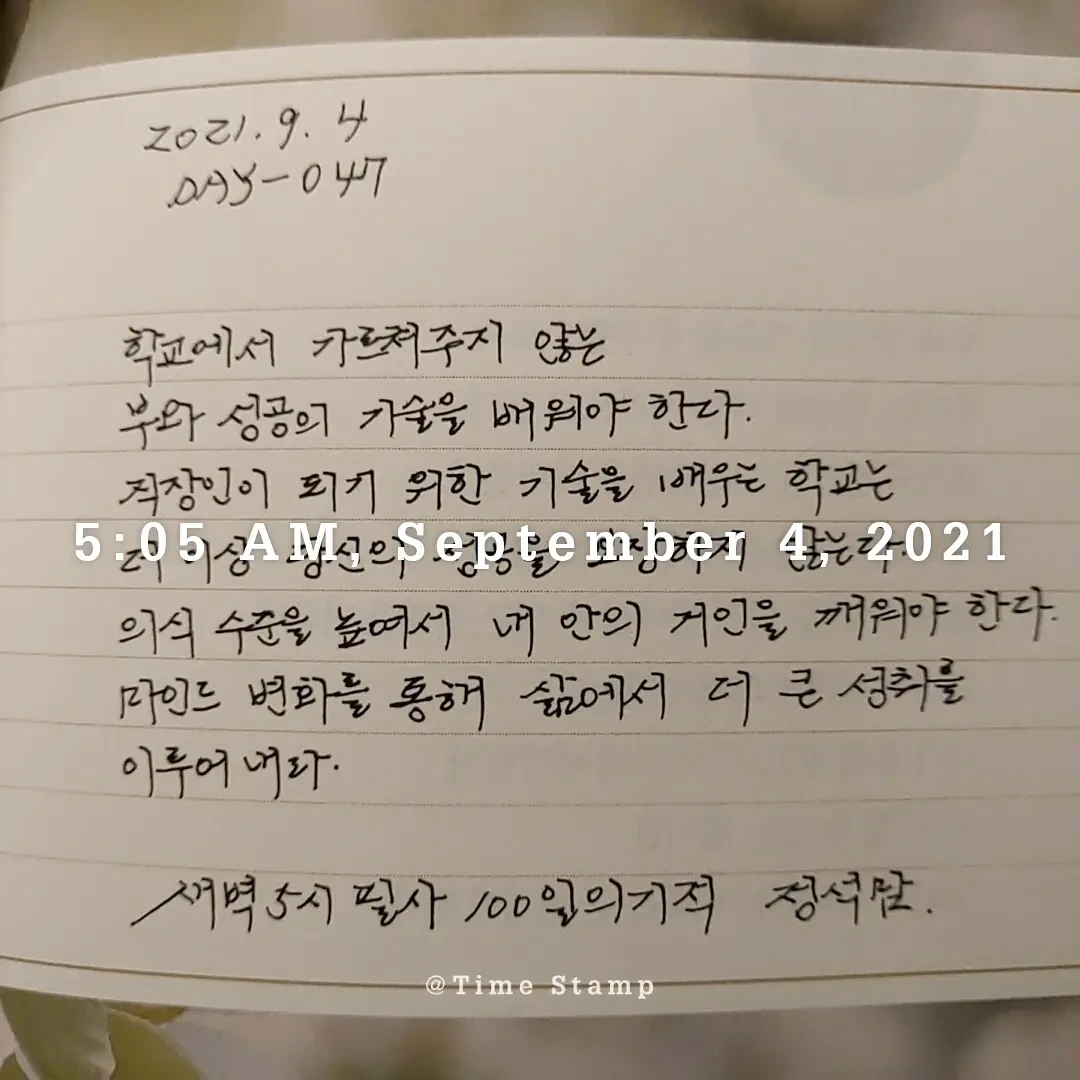 2021. 9. 4
DAY-047
학교에서 가르쳐주지 않는
부와 성공의 기술을 배워야 한다.
직장인이 되기 위한 기술을 배우는 학교는
더 이상 당신의 성공을 보장하지 않는다.
5:05 AM, September 4, 2021
의식 수준을 높여서 내 안의 거인을 깨워야 한다.
마인드 변화를 통해 삶에서 더 큰 성취를
이루어 내라.
새벽 5시 필사 100일의기적 정석맘.
@Time Stamp